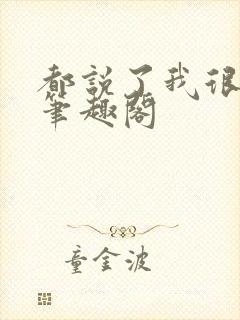 都説了我很
筆趣閣
童金波